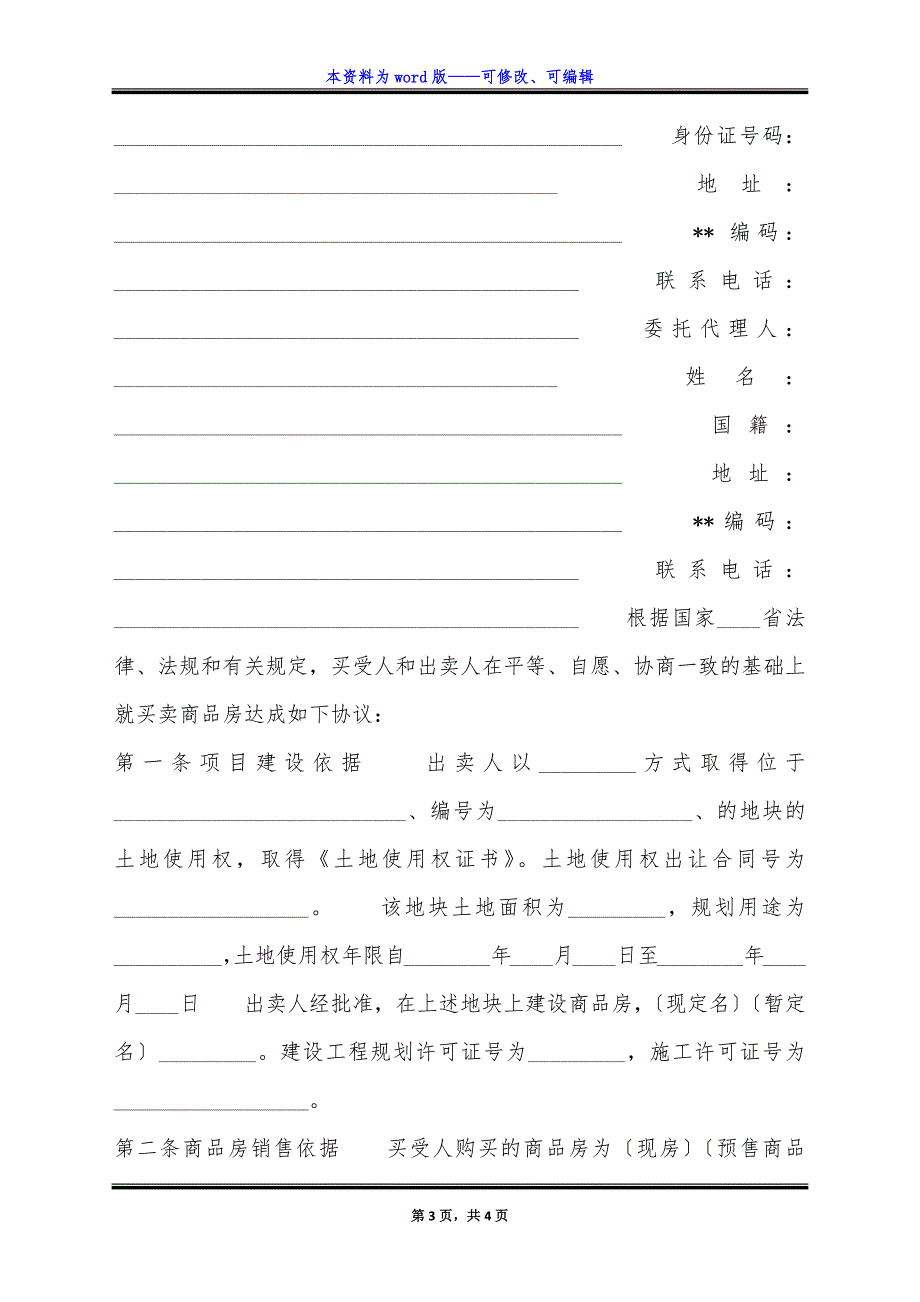 本资料为 word 版——可修改、可编辑
_______________________________________________ 身份证号码：
_________________________________________ 地址：
_______________________________________________ ** 编码：
___________________________________________ 联系电话：
___________________________________________ 委托代理人：
_________________________________________ 姓名：
_______________________________________________ 国籍：
_______________________________________________ 地址：
_______________________________________________ **编码：
___________________________________________ 联系电话：
___________________________________________ 根据国家____省法
律、法规和有关规定，买受人和出卖人在平等、自愿、协商一致的基础上
就买卖商品房达成如下协议：
第一条项目建设依据 出卖人以_________方式取得位于
___________________________、编号为__________________、的地块的
土地使用权，取得《土地使用权证书》。土地使用权出让合同号为
__________________。 该地块土地面积为_________，规划用途为
__________，土地使用权年限自________年____月____日至________年____
月____日 出卖人经批准，在上述地块上建设商品房，〔现定名〕〔暂定
名〕_________。建设工程规划许可证号为_________，施工许可证号为
__________________。
第二条商品房销售依据 买受人购买的商品房为〔现房〕〔预售商品
第 3 页，共 4 页